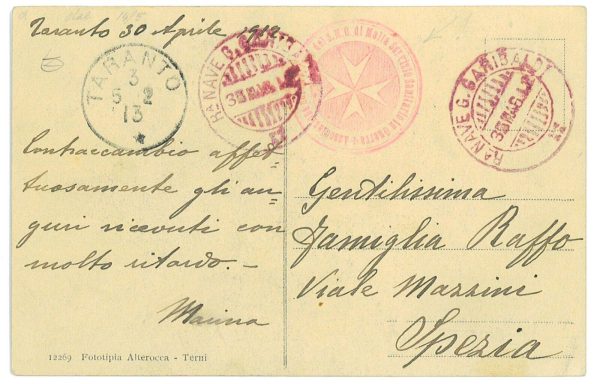 Taranto 30 Aprile 1912
TARANTO
3
5 2
13
RA NAVE G. GARIBALDI
RA NAVE G. GARIBALDI
S.M.O. di Malta
Contraccambio affet=
tuosamente gli au=
guri ricevuti con
molto ritardo. —
Gentilissima
Famiglia Raffo
Viale Mazzini
Spezia
12269 Fototipia Alterocca - Terni